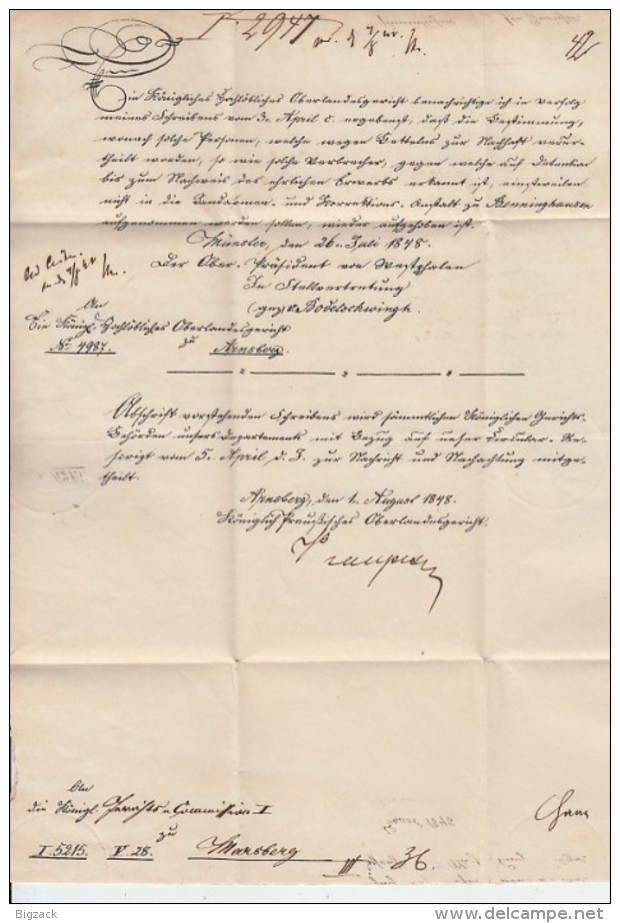 I. 2947
42
Ein Königliches Hochlöbliches Oberlandesgericht benachrichtige ich in Verfolg
meines Schreibens vom 3. April c. ergebenst, daß die Bestimmung,
wonach solche Personen, welche wegen Bettelns zur Nachhaft verur-
theilt worden, so wie solche Verbrecher, gegen welche auf Detention
bis zum Nachweis des ehrlichen Erwerbs erkannt ist, einstweilen
nicht in die Landarmen- und Korrektions-Anstalt zu Benninghausen
aufgenommen werden sollen, wieder aufgehoben ist.
Münster, den 26. Juli 1848.
Der Ober-Präsident von Westphalen
In Stellvertretung
(gez) v. Bodelschwingh.
An
Ein Königl. Hochlöbliches Oberlandesgericht
No 4987. zu Arnsberg.
Abschrift vorstehenden Schreibens wird sämmtlichen Königlichen Gerichts-
Behörden unsers Departements mit Bezug auf unser Circular-Re-
script vom 5. April d. J. zur Nachricht und Nachachtung mitge-
theilt.
Arnsberg, den 1. August 1848.
Königlich Preußisches Oberlandesgericht.
An
die Königl. Gerichts-Commission I
zu
I. 5215. V. 28. Marsberg
III 36
Bigzack http://www.delcampe.net